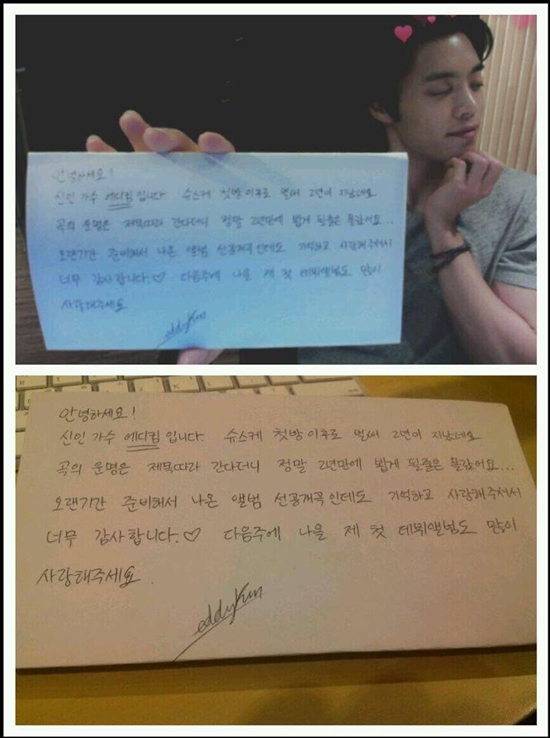 안녕하세요!
신인 가수 에디킴 입니다. 슈스케 첫방 이후로 벌써 2년이 지났네요
곡의 운명은 제목따라 간다더니 정말 2년만에 빛을 볼줄은 몰랐어요...
오랜기간 준비해서 나온 앨범 선공개곡인데도 기억하고 사랑해주셔서
너무 감사합니다.♡ 다음주에 나올 제 첫 데뷔앨범도 많이
사랑해주세요
eddyKim
안녕하세요!
신인 가수 에디킴 입니다. 슈스케 첫방 이후로 벌써 2년이 지났네요
곡의 운명은 제목따라 간다더니 정말 2년만에 빛을 볼줄은 몰랐어요...
오랜기간 준비해서 나온 앨범 선공개곡인데도 기억하고 사랑해주셔서
너무 감사합니다.♡ 다음주에 나올 제 첫 데뷔앨범도 많이
사랑해주세요.
eddyKim